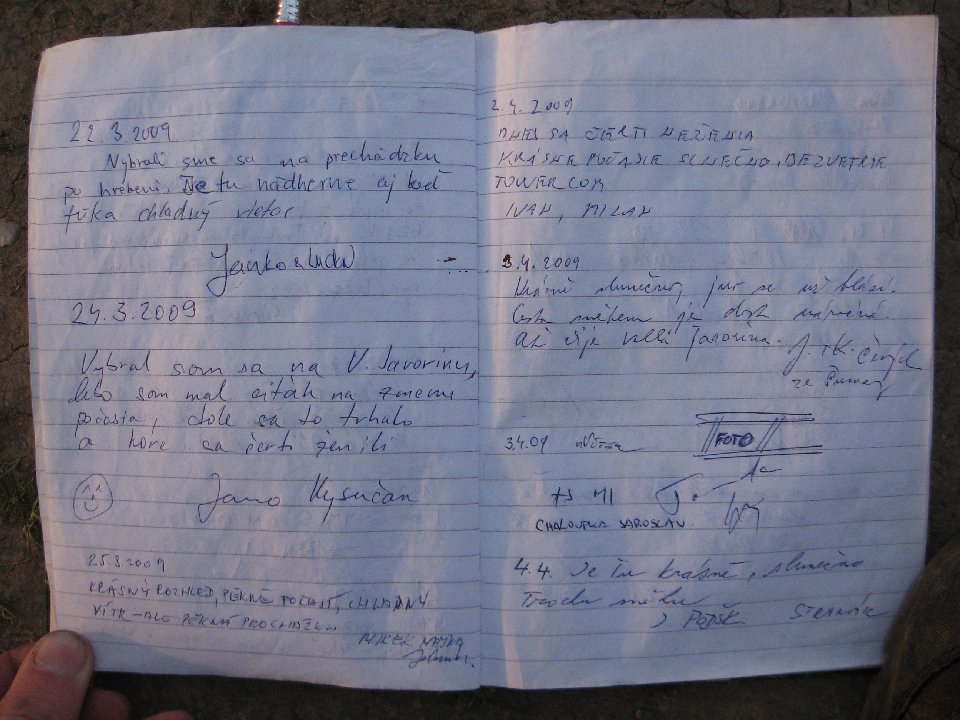 22.3.2009
Vybrali sme sa na prechádzku
po hrebeni. Je tu nádherne aj keď
fúka chladný vietor.
24.3.2009
Vybral som sa na V. Javorinu,
lebo som mal čiťák na zmenu
počasia, dole sa to trhalo
a hore sa čerti ženili
Jano Kysučan
25.3.2009
KRÁSNÝ ROZHLED, PĚKNÉ POČASÍ, CHLADNÝ
VÍTR - ALE PĚKNÁ PROCHÁZKA
2.4.2009
DNES SA ČERTI NEŽENIA
KRÁSNE POČASIE SLNEČNO, BEZVETRIE
TOWERCOM
IVAN, MILAN
3.4.2009
Krásně slunečno, jen se už blésí.
Cesta sněhem je dost náročná.
Ať žije velká Javořina.
ze Šumavy
3.4.09
FOTO
CHALOUPKA JAROSLAV
4.4. Je tu krásně, slunečno
Trochu sněhu